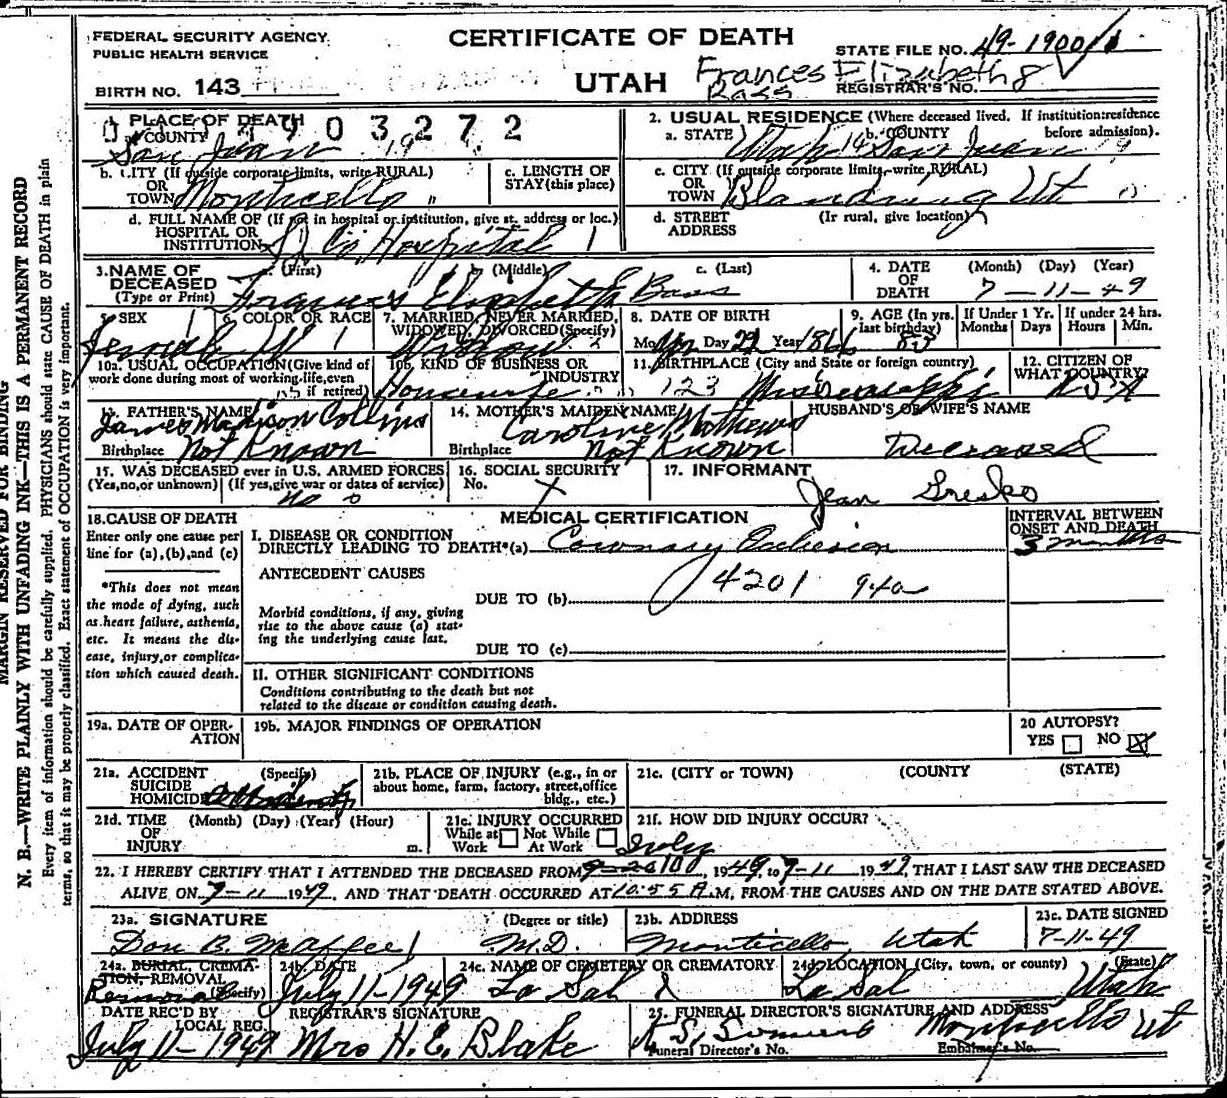 FEDERAL SECURITY AGENCY
PUBLIC HEALTH SERVICE
CERTIFICATE OF DEATH
STATE FILE NO. 49-1900
BIRTH NO. 143
UTAH
Frances Elizabeth Bass
REGISTRAR'S NO. 8
1. PLACE OF DEATH
4903272
a. COUNTY San Juan 19
b. CITY (If outside corporate limits, write RURAL) OR TOWN Monticello
c. LENGTH OF STAY (this place)
d. FULL NAME OF (If not in hospital or institution, give st. address or loc.) HOSPITAL OR INSTITUTION S J Co Hospital 1
2. USUAL RESIDENCE (Where deceased lived. If institution: residence before admission).
a. STATE Utah
b. COUNTY San Juan
c. CITY (If outside corporate limits, write RURAL) OR TOWN Blanding Ut
d. STREET ADDRESS (Ir rural, give location)
3. NAME OF DECEASED (Type or Print)
a. (First) b. (Middle) c. (Last)
Frances Elizabeth Bass
4. DATE OF DEATH (Month) (Day) (Year)
7-11-49
5. SEX Female
6. COLOR OR RACE W
7. MARRIED, NEVER MARRIED, WIDOWED, DIVORCED (Specify)
Widow
8. DATE OF BIRTH
Mo. Day 22 Year 1866
9. AGE (In yrs. last birthday)
If Under 1 Yr. Months Days
If under 24 hrs. Hours Min.
10a. USUAL OCCUPATION (Give kind of work done during most of working life, even if retired)
10b. KIND OF BUSINESS OR INDUSTRY
Housewife
11. BIRTHPLACE (City and State or foreign country)
123 Mississippi
12. CITIZEN OF WHAT COUNTRY?
USA
13. FATHER'S NAME
James Madison Collins
Birthplace Not Known
14. MOTHER'S MAIDEN NAME
Caroline Mathews
Birthplace Not Known
HUSBAND'S OR WIFE'S NAME
Deceased
15. WAS DECEASED ever in U.S. ARMED FORCES
(Yes, no, or unknown) (If yes, give war or dates of service)
no
16. SOCIAL SECURITY No.
17. INFORMANT
Jean
18. CAUSE OF DEATH
Enter only one cause per line for (a), (b), and (c)
*This does not mean the mode of dying, such as heart failure, asthenia, etc. It means the disease, injury, or complication which caused death.
MEDICAL CERTIFICATION
I. DISEASE OR CONDITION DIRECTLY LEADING TO DEATH*(a) Coronary Occlusion
INTERVAL BETWEEN ONSET AND DEATH
3 months
ANTECEDENT CAUSES
4201
DUE TO (b)
Morbid conditions, if any, giving rise to the above cause (a) stating the underlying cause last.
DUE TO (c)
II. OTHER SIGNIFICANT CONDITIONS
Conditions contributing to the death but not related to the disease or condition causing death.
19a. DATE OF OPERATION
19b. MAJOR FINDINGS OF OPERATION
20 AUTOPSY?
YES NO
21a. ACCIDENT SUICIDE HOMICIDE (Specify)
21b. PLACE OF INJURY (e.g., in or about home, farm, factory, street, office bldg., etc.)
21c. (CITY or TOWN) (COUNTY (STATE)
21d. TIME OF INJURY (Month) (Day) (Year) (Hour) m.
21e. INJURY OCCURRED
While at Work Not While At Work
21f. HOW DID INJURY OCCUR?
July
22. I HEREBY CERTIFY THAT I ATTENDED THE DECEASED FROM 10, 1949, to 7-11 1949, THAT I LAST SAW THE DECEASED
ALIVE ON 7-11 1949, AND THAT DEATH OCCURRED AT 10:55 A.M, FROM THE CAUSES AND ON THE DATE STATED ABOVE.
23a. SIGNATURE (Degree or title)
Don B. McAffee M.D.
23b. ADDRESS
Monticello, Utah
23c. DATE SIGNED
7-11-49
24a. BURIAL, CREMATION, REMOVAL (Specify)
Removal
24b. DATE
July 11-1949
24c. NAME OF CEMETERY OR CREMATORY
La Sal
24d. LOCATION (City, town, or county) (State)
La Sal Utah
DATE REC'D BY LOCAL REG.
July 11-1949
REGISTRAR'S SIGNATURE
Mrs H. E. Blake
25. FUNERAL DIRECTOR'S SIGNATURE AND ADDRESS
Monticello Ut
Funeral Director's No.
Embalmer's No.
MARGIN RESERVED FOR BINDING
N. B.—WRITE PLAINLY WITH UNFADING INK—THIS IS A PERMANENT RECORD
Every item of information should be carefully supplied. PHYSICIANS should state CAUSE OF DEATH in plain
terms, so that it may be properly classified. Exact statement of OCCUPATION is very important.